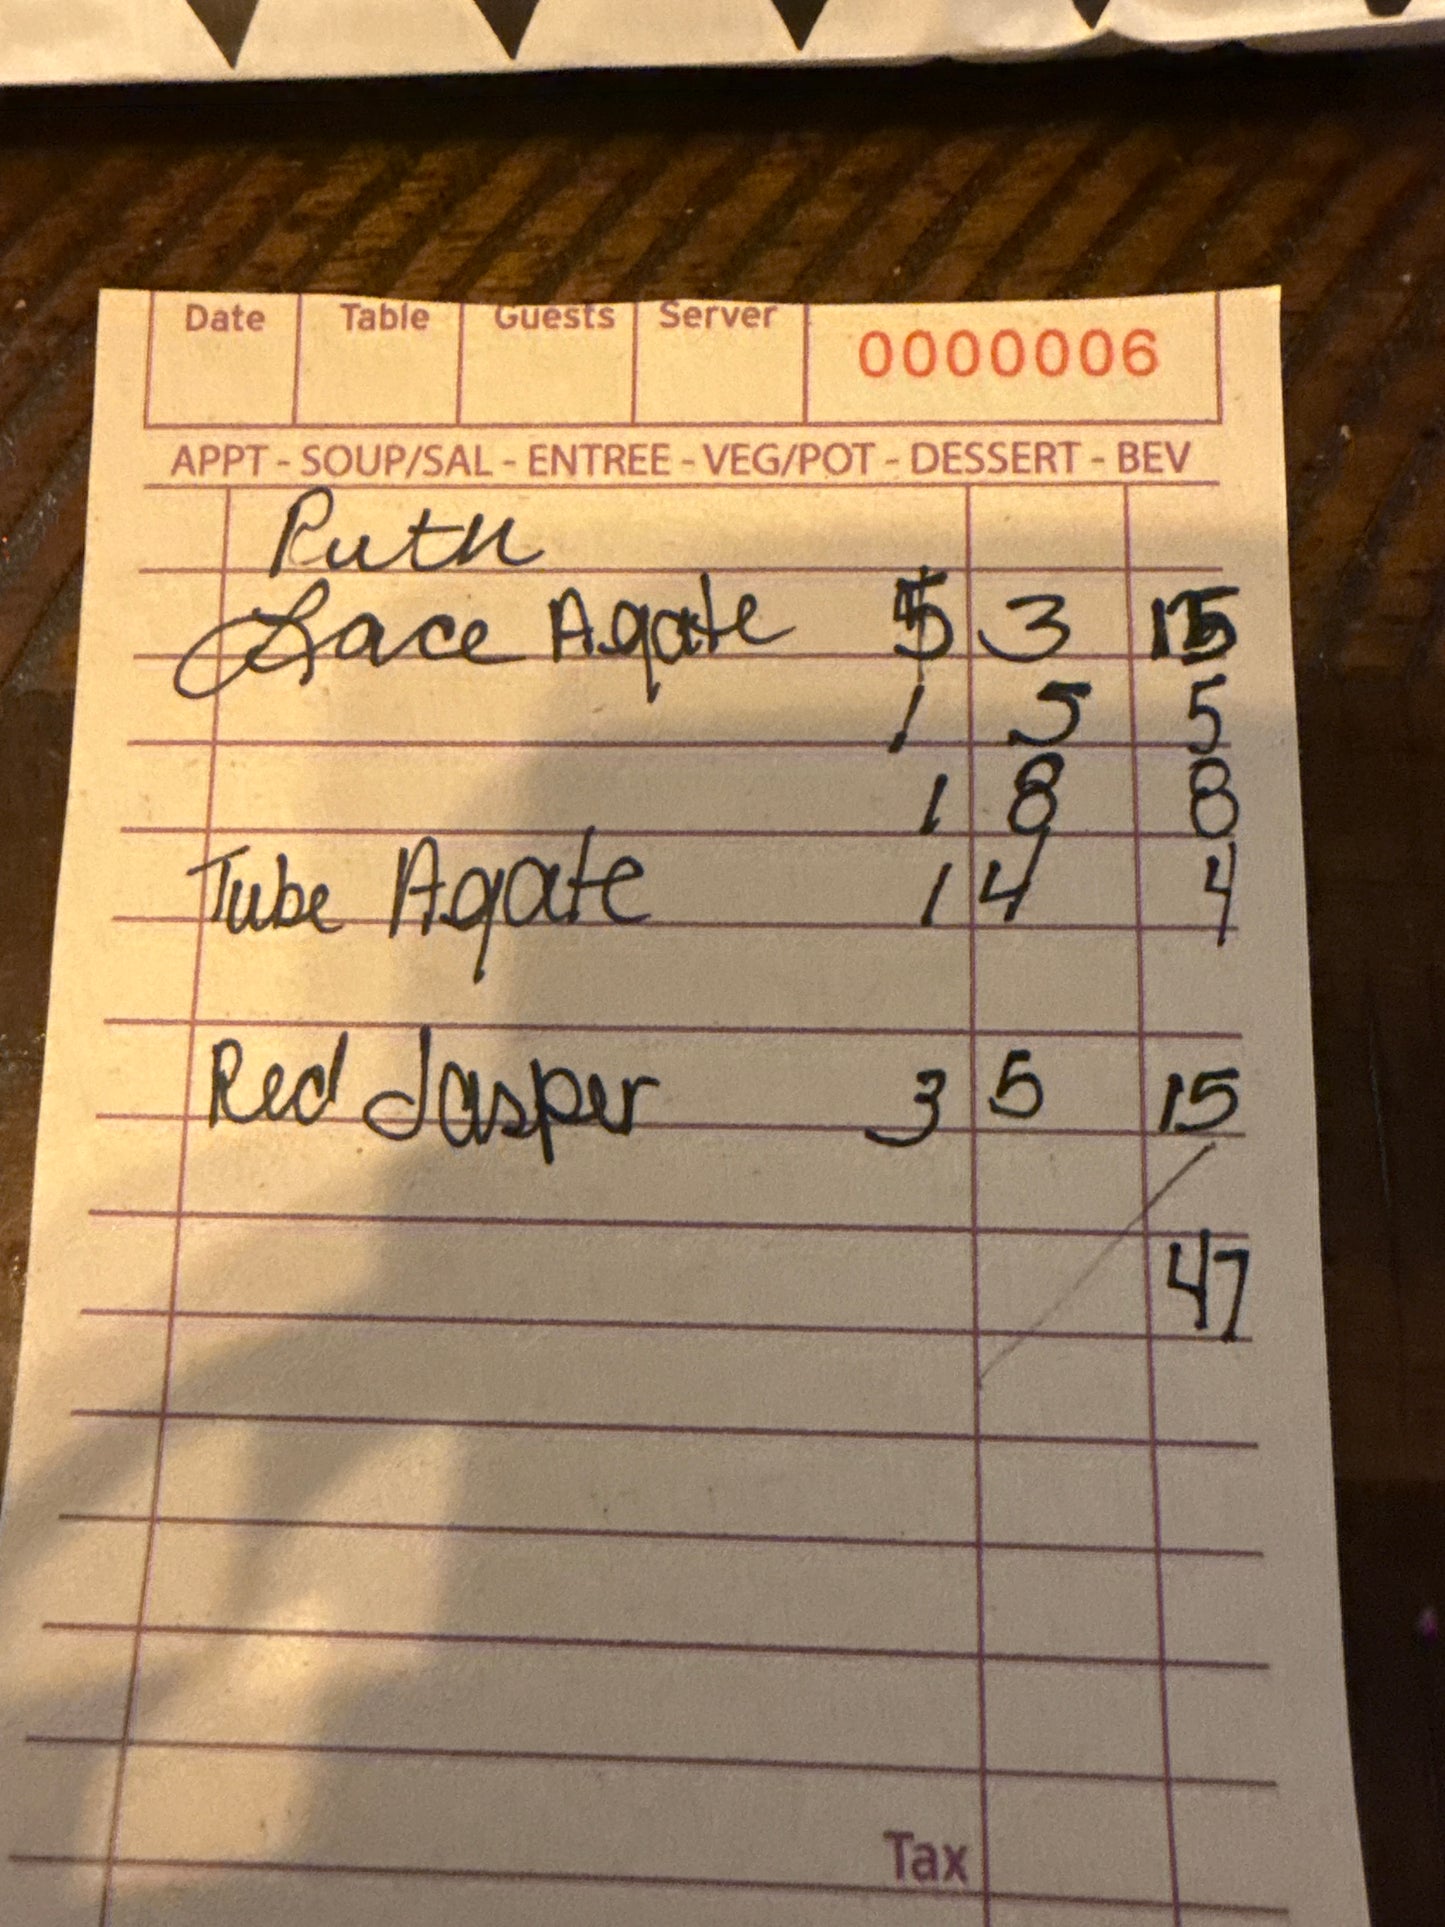 Date Table Guests Server
0000006
APPT - SOUP/SAL - ENTREE - VEG/POT - DESSERT - BEV
Ruth
Lace Agate 5 3 15
1 5 5
1 8 8
Tube Agate 1 4 4
Red Jasper 3 5 15
47
Tax